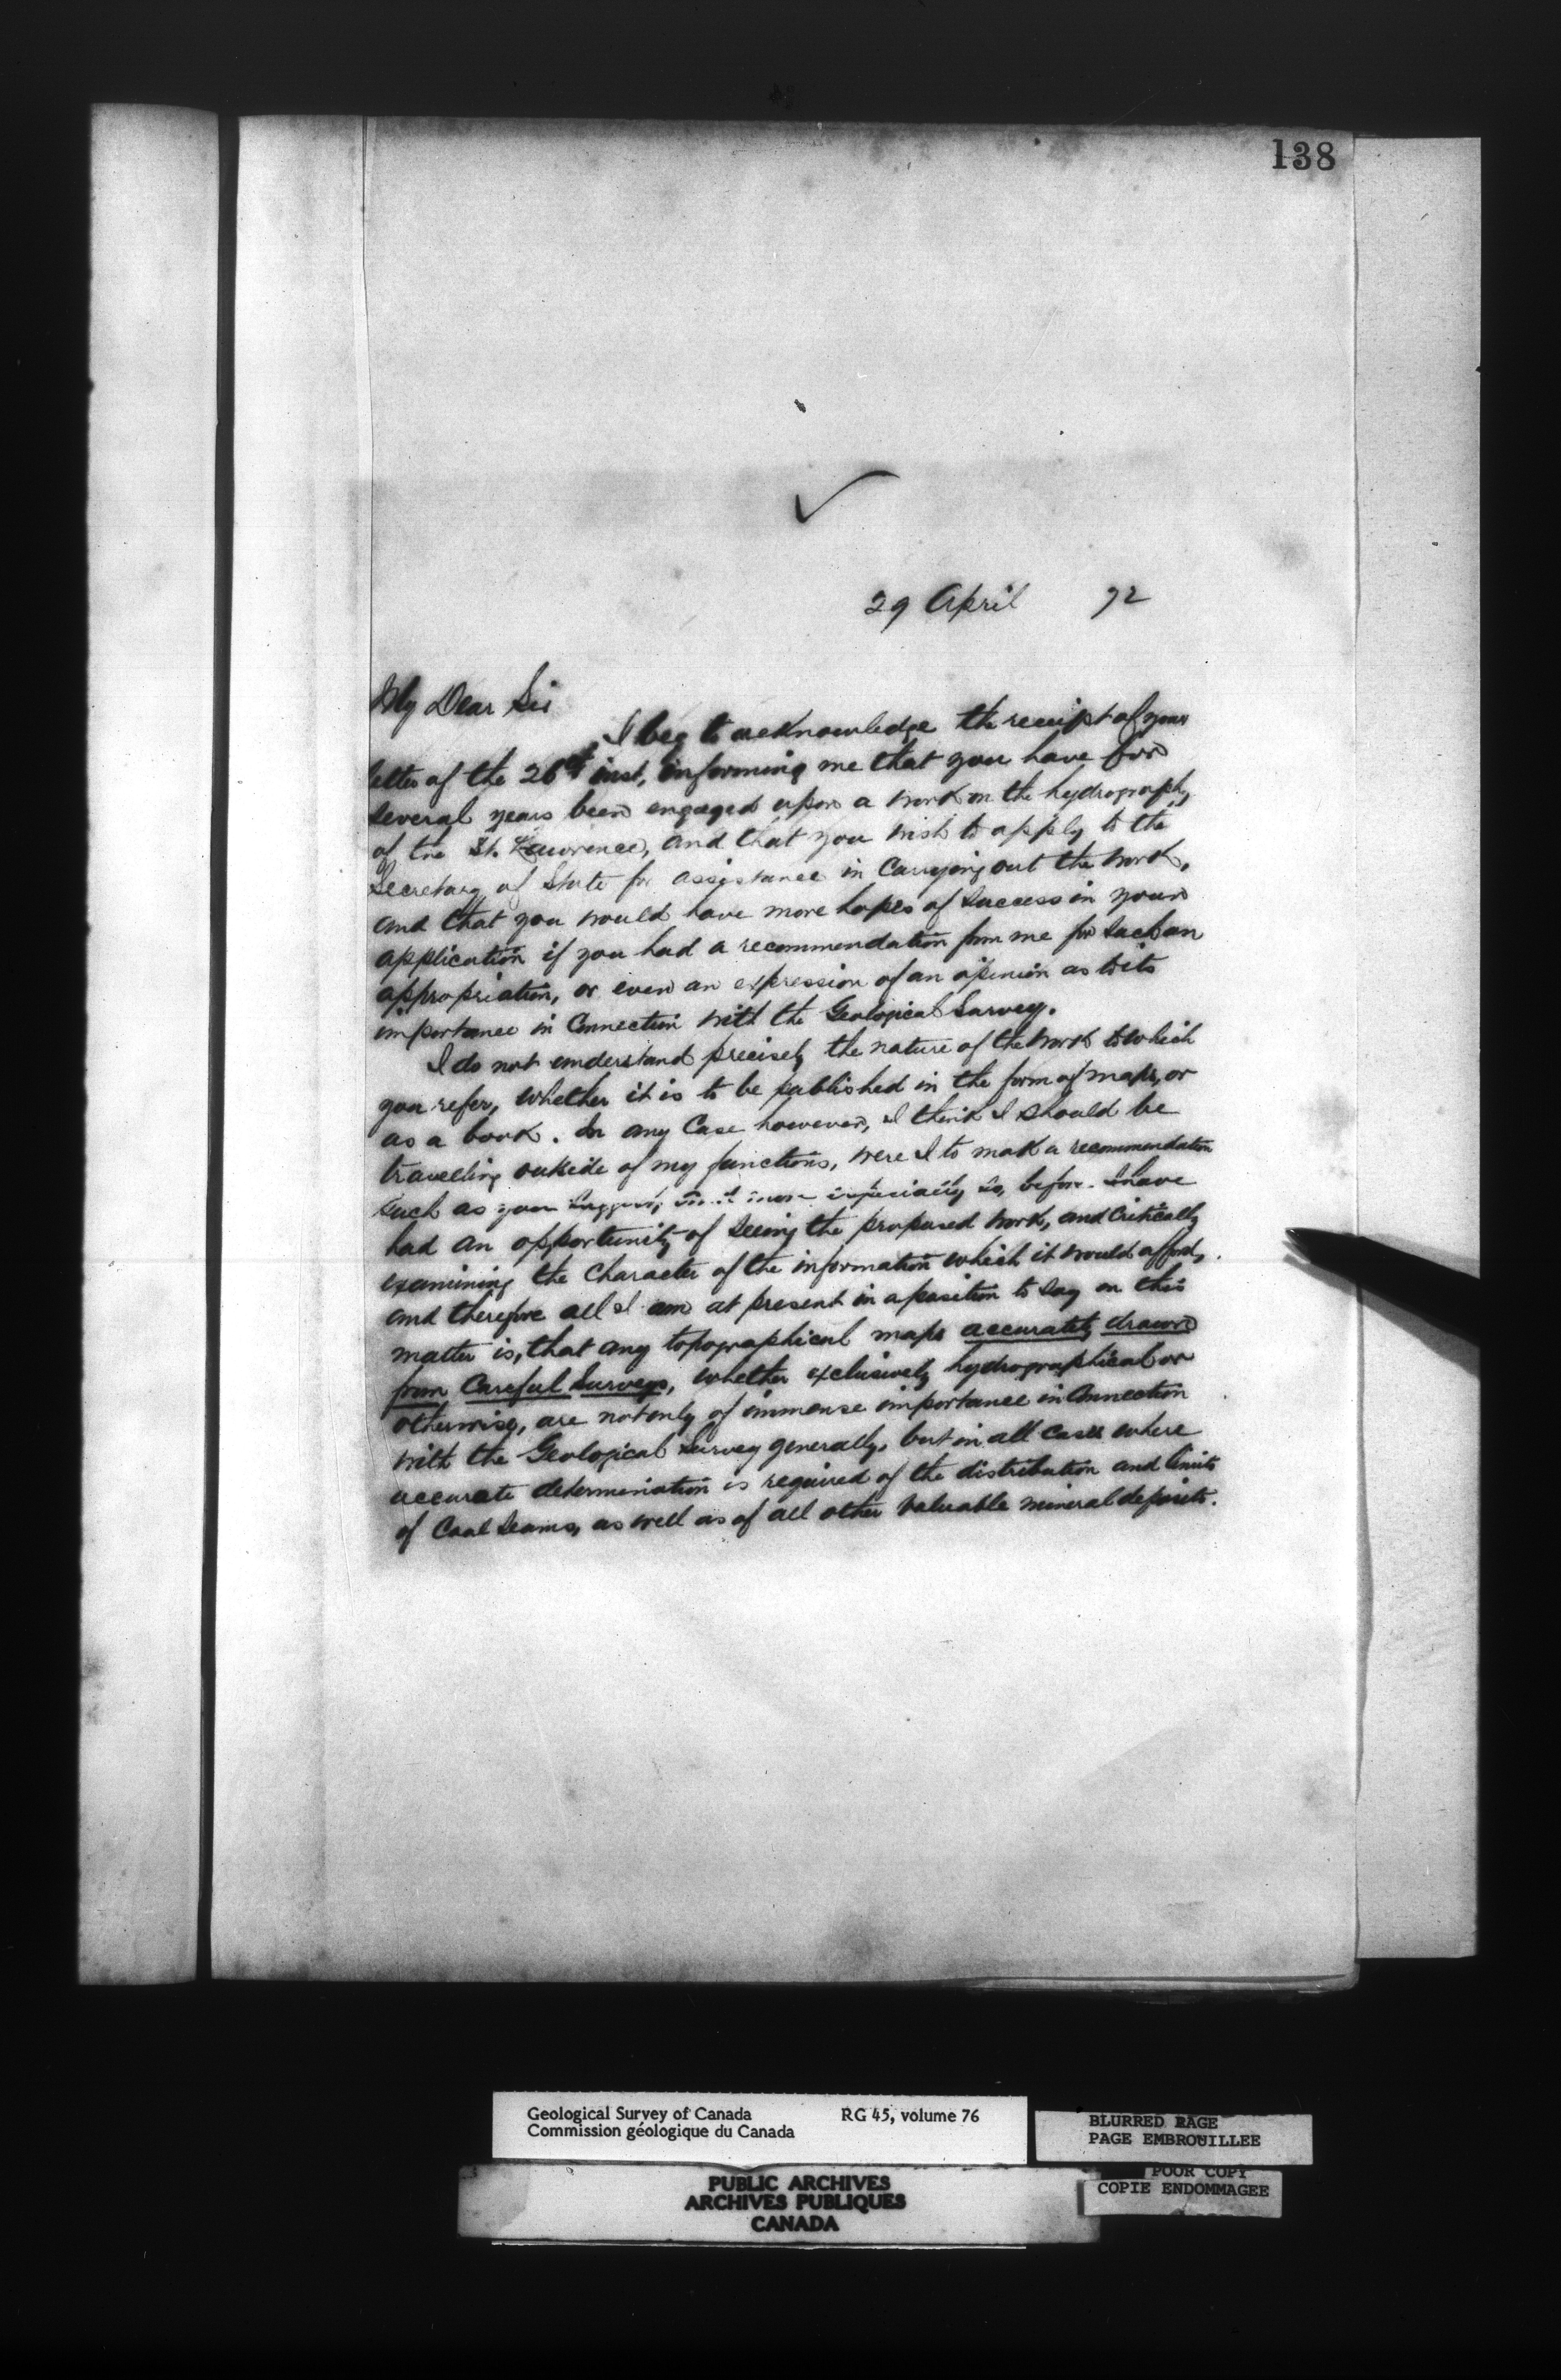 138
29 April 72
My Dear Sir
I beg to acknowledge the receipt of your
letter of the 26th inst, informing me that you have for
several years been engaged upon a work on the hydrography
of the St. Lawrence, and that you wish to apply to the
Secretary of State for assistance in carrying out the work,
and that you would have more hopes of success in your
application if you had a recommendation from me for such an
appropriation, or even an expression of an opinion as to its
importance in Connection with the Geological Survey.
I do not understand precisely the nature of the work to which
you refer, whether it is to be published in the form of maps, or
as a book. In any Case however, I think I should be
travelling outside of my functions, were I to make a recommendation
such as you suggest, more especially so, before I have
had an opportunity of seeing the proposed work, and critically
examining the Character of the information which it would afford,
and therefore all I am at present in a position to say on this
matter is, that any topographical maps accurately drawn
from Careful Surveys, whether exclusively hydrographical or
otherwise, are not only of immense importance in Connection
with the Geological Survey generally, but in all cases where
accurate determination is required of the distribution and limits
of Coal Seams, as well as of all other valuable mineral deposits.
Geological Survey of Canada RG 45, volume 76
Commission géologique du Canada
BLURRED PAGE
PAGE EMBROUILLEE
POOR COPY
COPIE ENDOMMAGEE
PUBLIC ARCHIVES
ARCHIVES PUBLIQUES
CANADA